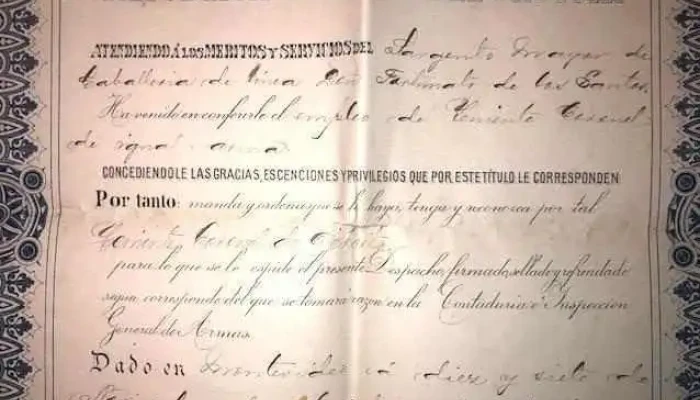 ATENDIENDO Á LOS MERITOS Y SERVICIOS DEL Sargento Mayor de
Caballeria de linea Don Fortunato de los Santos.
Ha venido en conferirle el empleo de Teniente Coronel
de igual arma
CONCEDIENDOLE LAS GRACIAS, ESCENCIONES Y PRIVILEGIOS QUE POR ESTE TÍTULO LE CORRESPONDEN
Por tanto: manda y ordena que se le haya, tenga y reconozca por tal
Teniente Coronel de
para lo que se le espide el presente Despacho, firmado, sellado y refrendado
segun corresponde del que se tomará razon en la Contaduria é Inspeccion
General de Armas.
Dado en Montevideo á diez y siete de